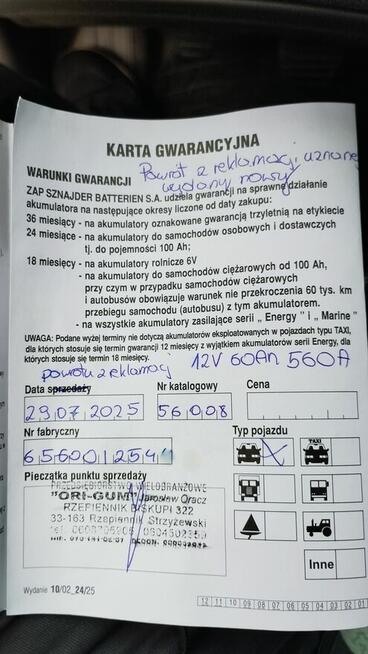 KARTA GWARANCYJNA
Powrót z reklamacji, uznane
wydany nowy
WARUNKI GWARANCJI
ZAP SZNAJDER BATTERIEN S.A. udziela gwarancji na sprawne działanie
akumulatora na następujące okresy liczone od daty zakupu:
36 miesięcy - na akumulatory oznakowane gwarancją trzyletnią na etykiecie
24 miesiące - na akumulatory do samochodów osobowych i dostawczych
tj. do pojemności 100 Ah;
18 miesięcy - na akumulatory rolnicze 6V
- na akumulatory do samochodów ciężarowych od 100 Ah,
przy czym w przypadku samochodów ciężarowych
i autobusów obowiązuje warunek nie przekroczenia 60 tys. km
przebiegu samochodu (autobusu) z tym akumulatorem.
- na wszystkie akumulatory zasilające serii „ Energy " i „ Marine "
UWAGA: Podane wyżej terminy nie dotyczą akumulatorów eksploatowanych w pojazdach typu TAXI,
dla których stosuje się termin gwarancji 12 miesięcy z wyjątkiem akumulatorów serii Energy, dla
których stosuje się termin 18 miesięcy.
12V 60Ah 560A
powrotu z reklamacji
Data sprzedaży Nr katalogowy Cena
29.07.2025 56008
Nr fabryczny Typ pojazdu
TAXI
Pieczątka punktu sprzedaży
PRZEDSIĘBIORSTWO WIELOBRANŻOWE
"ORI-GUM" Jarosław Oracz
RZEPIENNIK BISKUPI 322
33-163 Rzepiennik Strzyżewski
Inne
Wydanie 10/02_24/25
12 11 10 09 08 07 06 05 04 03 02 01